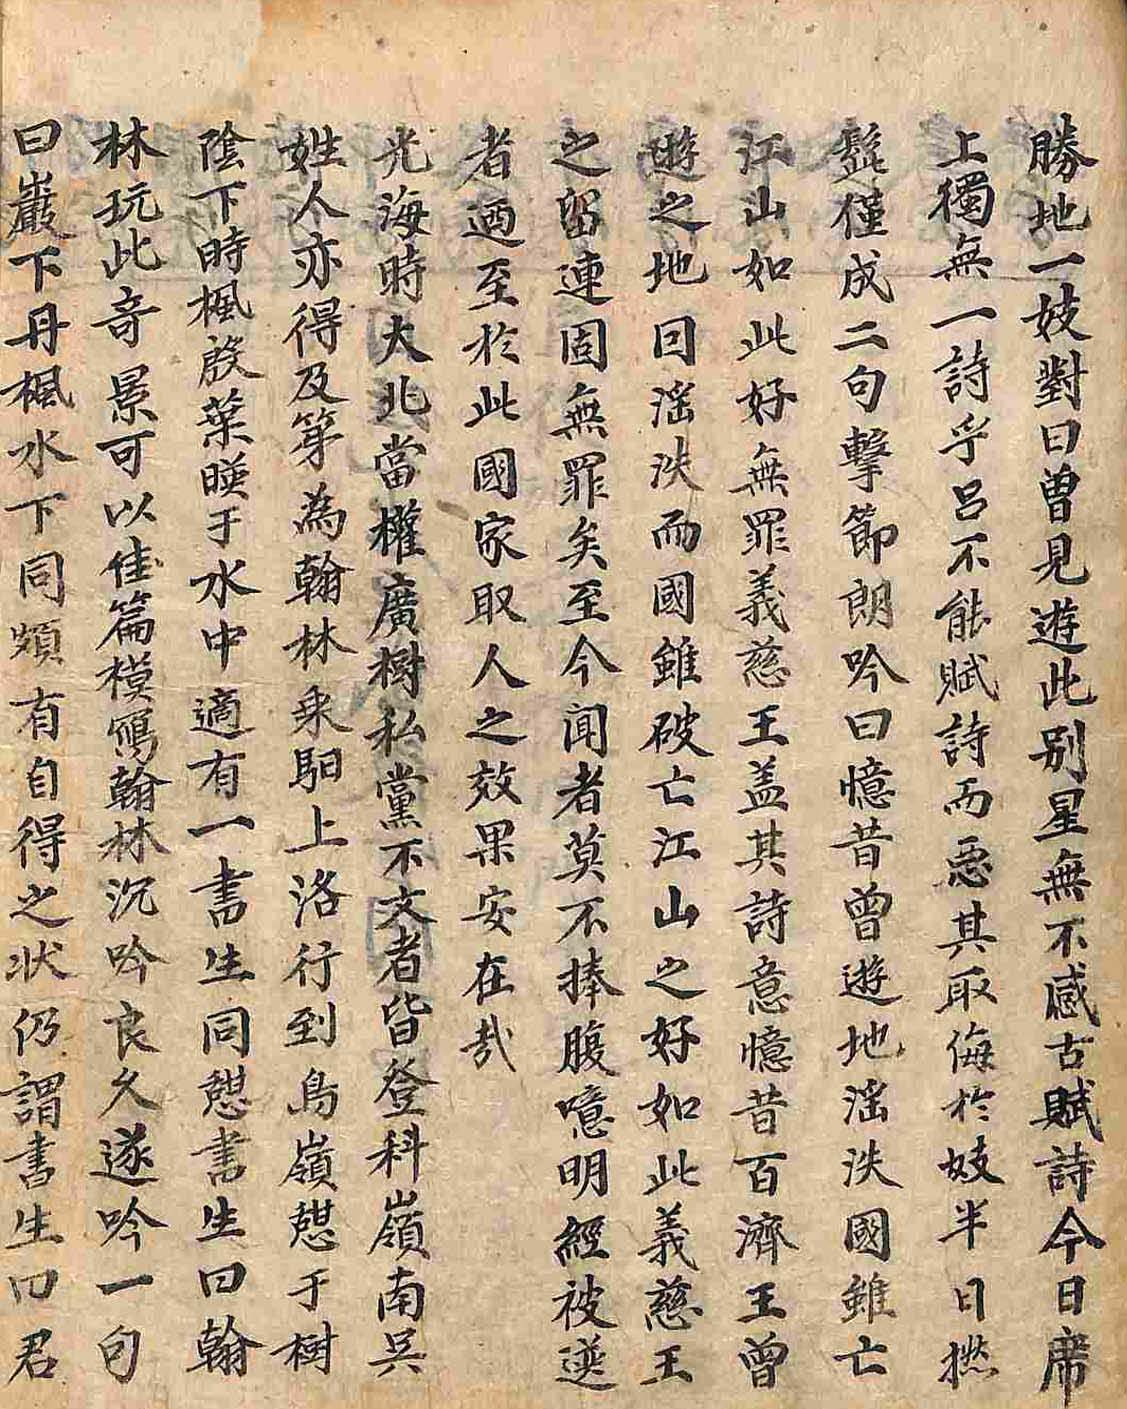 勝地一妓對曰曾見遊此別星無不感古賦詩今日席
上獨無一詩乎呂不能賦詩而恧其取侮於妓半日撚
髭僅成二句擊節朗吟曰憶昔曾遊地滛泆國雖亡
江山如此好無罪義慈王盖其詩意憶昔百濟王曾
遊之地曰滛泆而國雖破亡江山之好如此義慈王
之留連固無罪矣至今闻者莫不捧腹噫明經被選
者廼至於此國家取人之效果安在㢤
光海時大北當權廣樹私黨不文者皆登科嶺南吴
姓人亦得及第為翰林乘馹上洛行到鳥嶺憇于樹
陰下時楓殷葉暎于水中適有一書生同憇書生曰翰
林玩此竒景可以佳篇模寫翰林沉吟良久遂吟一句
曰巖下丹楓水下同頗有自得之状仍謂書生曰君